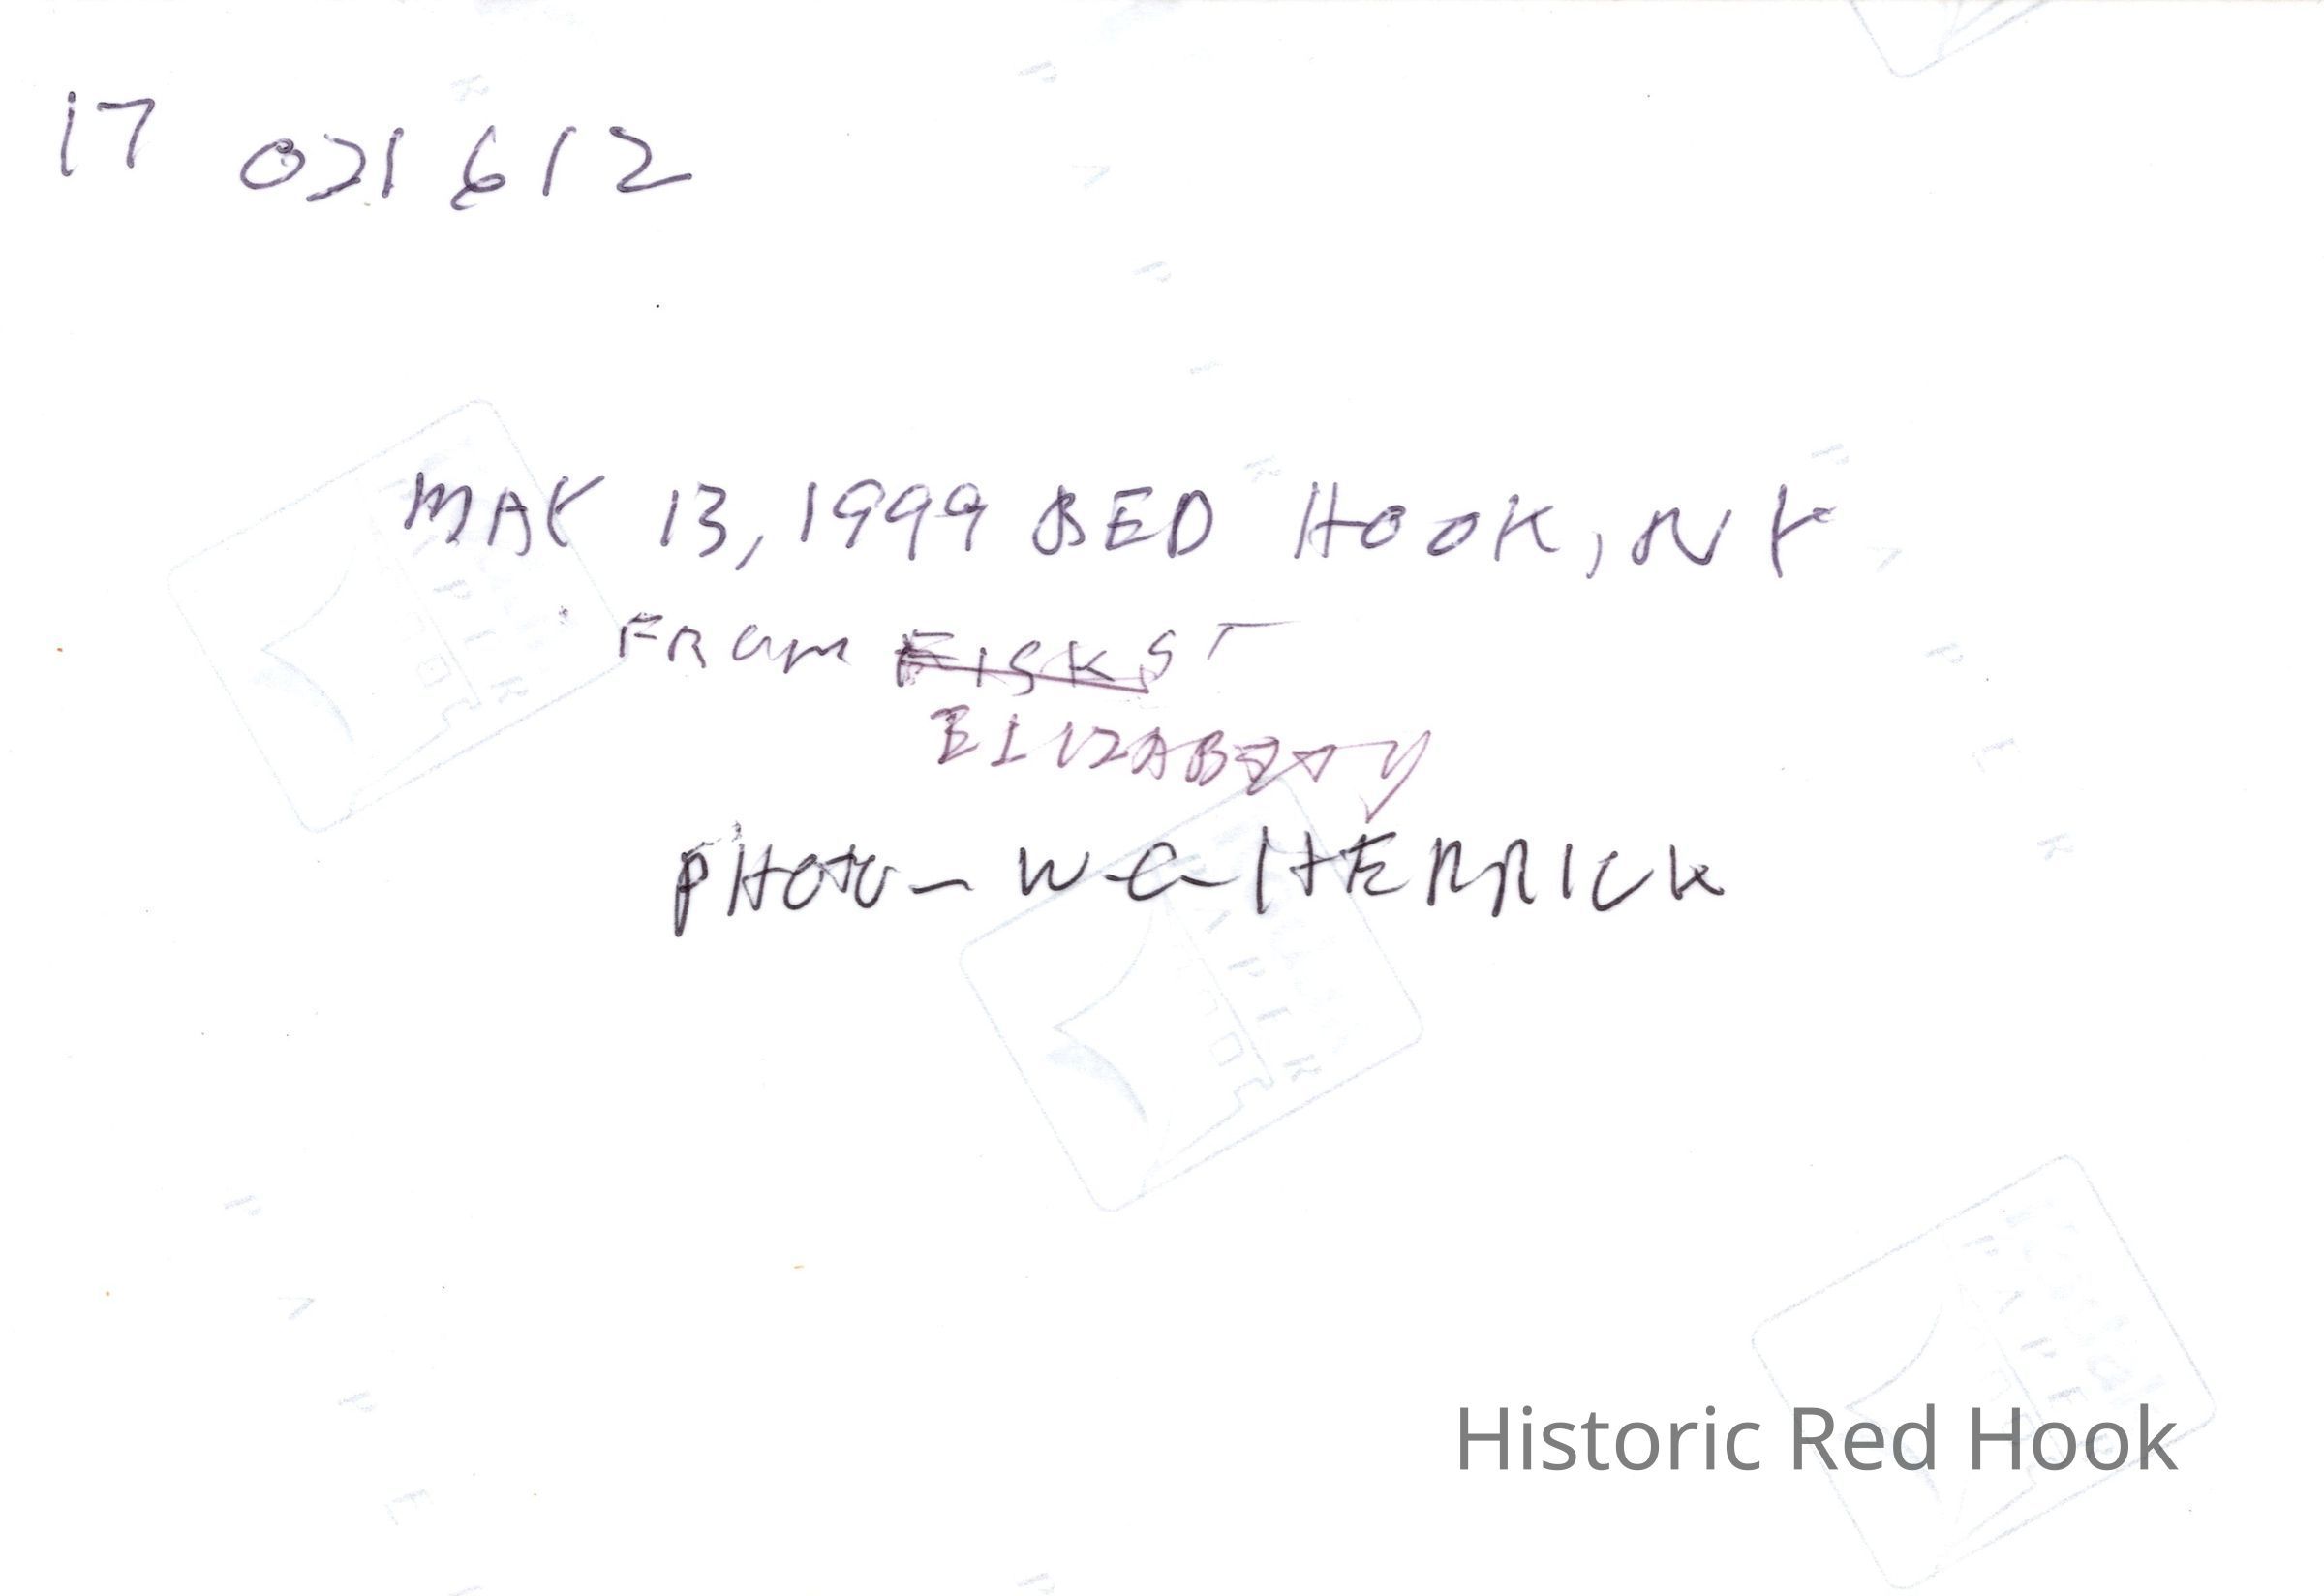 17 021612
MAY 13, 1999 RED HOOK, NY
FROM FISK ST
ELIZABETH
PHOTO - W C HERRICK
Historic Red Hook